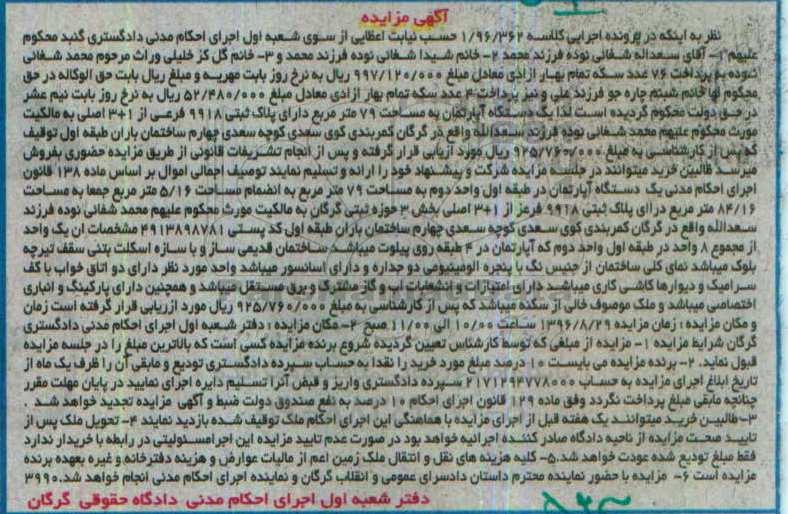 آگهی مزایده
نظر به اینکه در پرونده اجرایی کلاسه ۱/۹۶/۳۶۲ حسب نیابت اعطایی از سوی شعبه اول اجرای احکام مدنی دادگستری گنبد محکوم
علیهم ۱- آقای سعداله شفائی نوده فرزند محمد ۲- خانم شیدا شفائی نوده فرزند محمد و ۳- خانم گل کز خلیلی وراث مرحوم محمد شفائی
نوده به پرداخت ۷۶ عدد سکه تمام بهار آزادی معادل مبلغ ۹۹۷/۱۲۰/۰۰۰ ریال به نرخ روز بابت مهریه و مبلغ ریال بابت حق الوکاله در حق
محکوم لها خانم شبنم چاره جو فرزند علی و نیز پرداخت ۴ عدد سکه تمام بهار آزادی معادل مبلغ ۵۲/۴۸۰/۰۰۰ ریال به نرخ روز بابت نیم عشر
در حق دولت محکوم گردیده است لذا یک دستگاه آپارتمان به مساحت ۷۹ متر مربع دارای پلاک ثبتی ۹۹۱۸ فرعی از ۱+۳ اصلی به مالکیت
مورث محکوم علیهم محمد شفائی نوده فرزند سعدالله واقع در گرگان کمربندی کوی سعدی کوچه سعدی چهارم ساختمان باران طبقه اول توقیف
که پس از کارشناسی به مبلغ ۹۲۵/۷۶۰/۰۰۰ ریال مورد ارزیابی قرار گرفته و پس از انجام تشریفات قانونی از طریق مزایده حضوری بفروش
میرسد طالبین خرید میتوانند در جلسه مزایده شرکت و پیشنهاد خود را ارائه و تسلیم نمایند توصیف اجمالی اموال بر اساس ماده ۱۳۸ قانون
اجرای احکام مدنی یک دستگاه آپارتمان در طبقه اول واحد دوم به مساحت ۷۹ متر مربع به انضمام مساحت ۵/۱۶ متر مربع جمعا به مساحت
۸۴/۱۶ متر مربع درای پلاک ثبتی ۹۹۱۸ فرعی از ۱+۳ اصلی بخش ۳ حوزه ثبتی گرگان به مالکیت مورث محکوم علیهم محمد شفائی نوده فرزند
سعدالله واقع در گرگان کمربندی کوی سعدی کوچه سعدی چهارم ساختمان باران طبقه اول کد پستی ۴۹۱۳۸۹۸۷۸۱ مشخصات ان یک واحد
از مجموع ۸ واحد در طبقه اول واحد دوم که آپارتمان در ۴ طبقه روی پیلوت میباشد ساختمان قدیمی ساز و با سازه اسکلت بتنی سقف تیرچه
بلوک میباشد نمای کلی ساختمان از جنس سنگ با پنجره الومینیومی دو جداره و دارای آسانسور میباشد واحد مورد نظر دارای دو اتاق خواب با کف
سرامیک و دیوارها کاشی کاری میباشد دارای امتیازات و انشعابات آب و گاز مشترک و برق مستقل میباشد و همچنین دارای پارکینگ و انباری
اختصاصی میباشد و ملک موصوف خالی از سکنه میباشد که پس از کارشناسی به مبلغ ۹۲۵/۷۶۰/۰۰۰ ریال مورد ارزیابی قرار گرفته است زمان
و مکان مزایده : زمان مزایده ۱۳۹۶/۸/۲۹ ساعت ۱۰/۰۰ الی ۱۱/۰۰ صبح ۲- مکان مزایده : دفتر شعبه اول اجرای احکام مدنی دادگستری
گرگان شرایط مزایده ۱- مزایده از مبلغی که توسط کارشناس تعیین گردیده شروع برنده مزایده کسی است که بالاترین مبلغ را در جلسه مزایده
قبول نماید. ۲- برنده مزایده می بایست ۱۰ درصد مبلغ مورد خرید را نقدا به حساب سپرده دادگستری تودیع و مابقی آن را ظرف یک ماه از
تاریخ ابلاغ اجرای مزایده به حساب ۲۱۷۱۲۹۴۷۷۸۰۰۰ سپرده دادگستری واریز و قبض آنرا تسلیم دایره اجرای نمایید در پایان مهلت مقرر
چنانچه مابقی مبلغ پرداخت نگردد وفق ماده ۱۲۹ قانون اجرای احکام ۱۰ درصد به نفع صندوق دولت ضبط و آگهی مزایده تجدید خواهد شد
۳- طالبین خرید میتوانند یک هفته قبل از اجرای مزایده با هماهنگی این اجرای احکام ملک توقیف شده بازدید نمایند ۴- تحویل ملک پس از
تایید صحت مزایده از ناحیه دادگاه صادر کننده اجرائیه خواهد بود در صورت عدم تایید مزایده این اجرامسئولیتی در رابطه با خریدار ندارد
فقط مبلغ تودیع شده عودت خواهد شد.۵- کلیه هزینه های نقل و انتقال ملک زمین اعم از مالیات عوارض و هزینه دفترخانه و غیره بعهده برنده
مزایده است ۶- مزایده با حضور نماینده محترم دادستان دادسرای عمومی و انقلاب گرگان و نماینده اجرای احکام مدنی انجام خواهد شد.۳۹۹۰
دفتر شعبه اول اجرای احکام مدنی دادگاه حقوقی گرگان